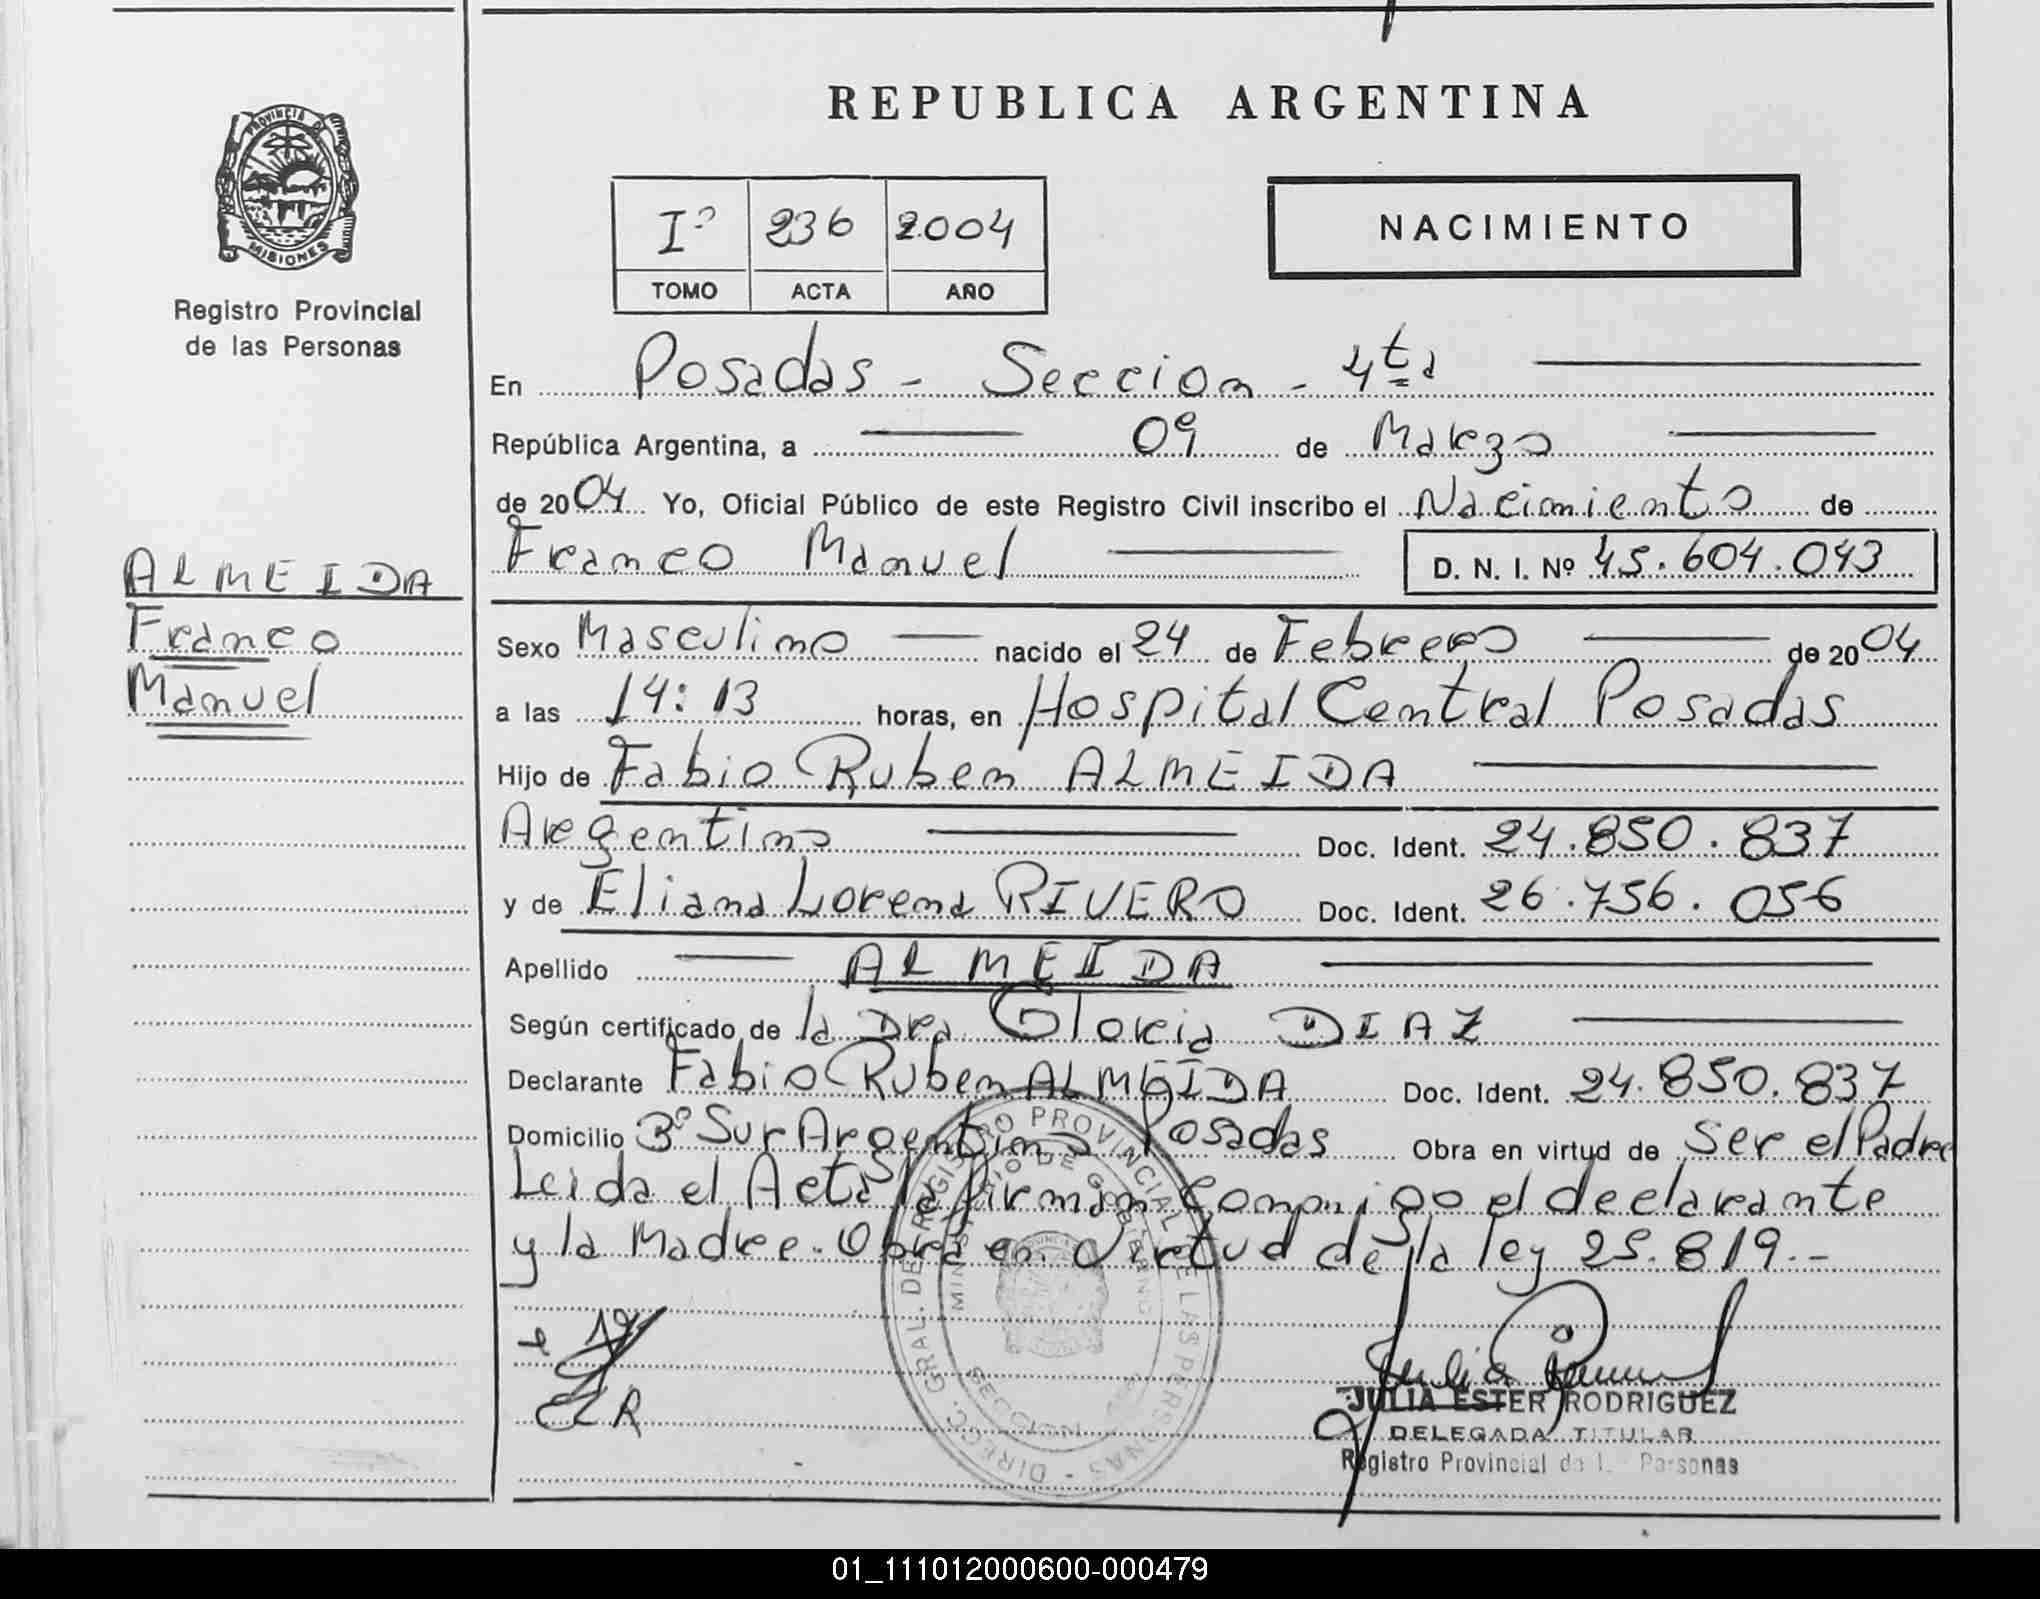 REPUBLICA ARGENTINA
PROVINCIA DE
MISIONES
Registro Provincial
de las Personas
Iº 236 2004
TOMO ACTA AÑO
NACIMIENTO
En Posadas - Seccion - 4ta
República Argentina, a 09 de Marzo
de 2004 Yo, Oficial Público de este Registro Civil inscribo el Nacimiento de
Franco Manuel D. N. I. Nº 45.604.043
ALMEIDA
Franco
Manuel
Sexo Masculino nacido el 24 de Febrero de 2004
a las 14:13 horas, en Hospital Central Posadas
Hijo de Fabio Ruben ALMEIDA
Argentino Doc. Ident. 24.850.837
y de Eliana Lorena RIVERO Doc. Ident. 26.756.056
Apellido ALMEIDA
Según certificado de la Dra Gloria DIAZ
Declarante Fabio Ruben ALMEIDA Doc. Ident. 24.850.837
Domicilio Bº Sur Argentino Posadas Obra en virtud de Ser el Padre
Leida el Acta la firman Conmigo el declarante
y la Madre. Obra en Virtud de la ley 25.819.-
DIREC. GRAL. DE REGISTRO PROVINCIAL DE LAS PERSONAS
MINISTERIO DE GOBIERNO
SECCION
ELR
JULIA ESTER RODRIGUEZ
DELEGADA TITULAR
Registro Provincial de l. Personas
01_111012000600-000479